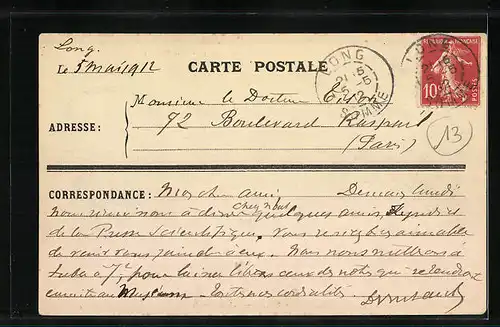 Long.
Le 5 mai 1912
CARTE POSTALE
LONG
SOMME
REPUBLIQUE FRANÇAISE
10c
POSTES
Monsieur le Docteur
ADRESSE :
72 Boulevard Raspail
(Paris)
13
CORRESPONDANCE : Mon cher ami Demain lundi
chez
nous réunissons à dîner quelques amis,
de la Presse Scientifique. Vous seriez bien aimable
de venir vous joindre à eux. Nous nous mettrons à
table à 7h, pour laisser libres ceux de nos
ensuite au Muséum. cordialités